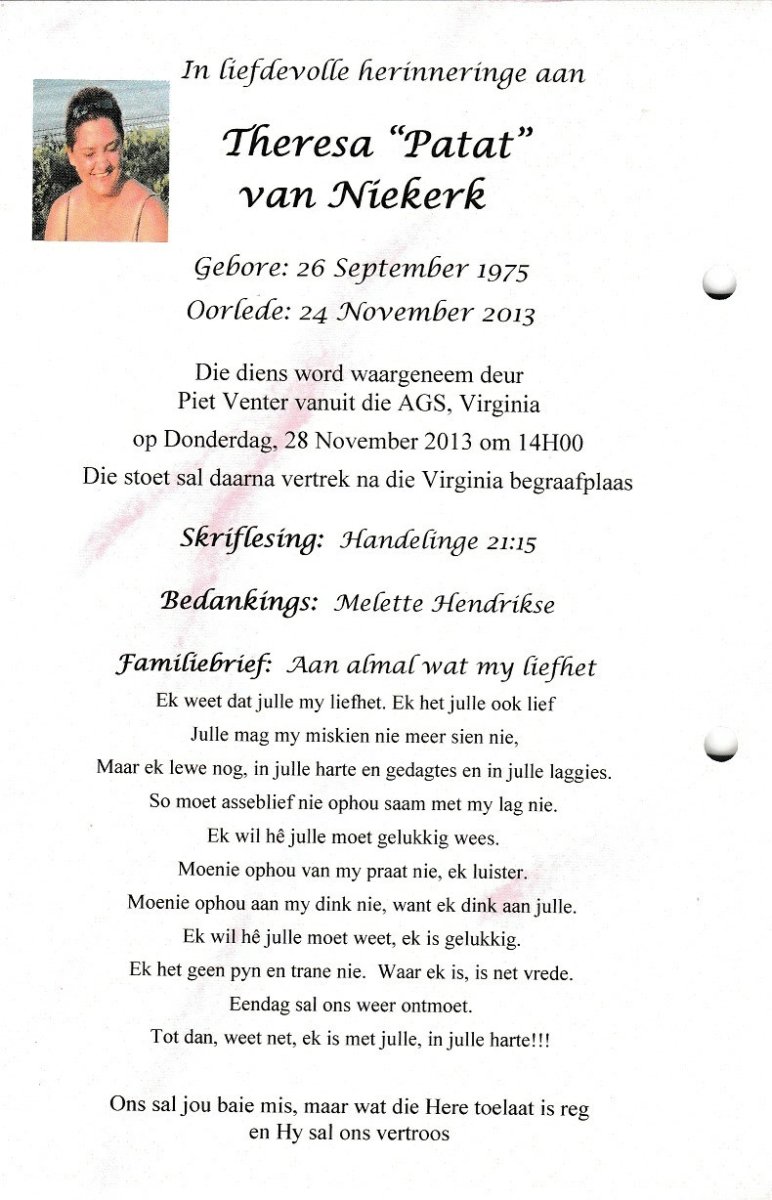 In liefdevolle herinneringe aan
Theresa “Patat”
van Niekerk
Gebore: 26 September 1975
Oorlede: 24 November 2013
Die diens word waargeneem deur
Piet Venter vanuit die AGS, Virginia
op Donderdag, 28 November 2013 om 14H00
Die stoet sal daarna vertrek na die Virginia begraafplaas
Skriflesing: Handelinge 21:15
Bedankings: Melette Hendrikse
Familiebrief: Aan almal wat my liefhet
Ek weet dat julle my liefhet. Ek het julle ook lief
Julle mag my miskien nie meer sien nie,
Maar ek lewe nog, in julle harte en gedagtes en in julle laggies.
So moet asseblief nie ophou saam met my lag nie.
Ek wil hê julle moet gelukkig wees.
Moenie ophou van my praat nie, ek luister.
Moenie ophou aan my dink nie, want ek dink aan julle.
Ek wil hê julle moet weet, ek is gelukkig.
Ek het geen pyn en trane nie. Waar ek is, is net vrede.
Eendag sal ons weer ontmoet.
Tot dan, weet net, ek is met julle, in julle harte!!!
Ons sal jou baie mis, maar wat die Here toelaat is reg
en Hy sal ons vertroos